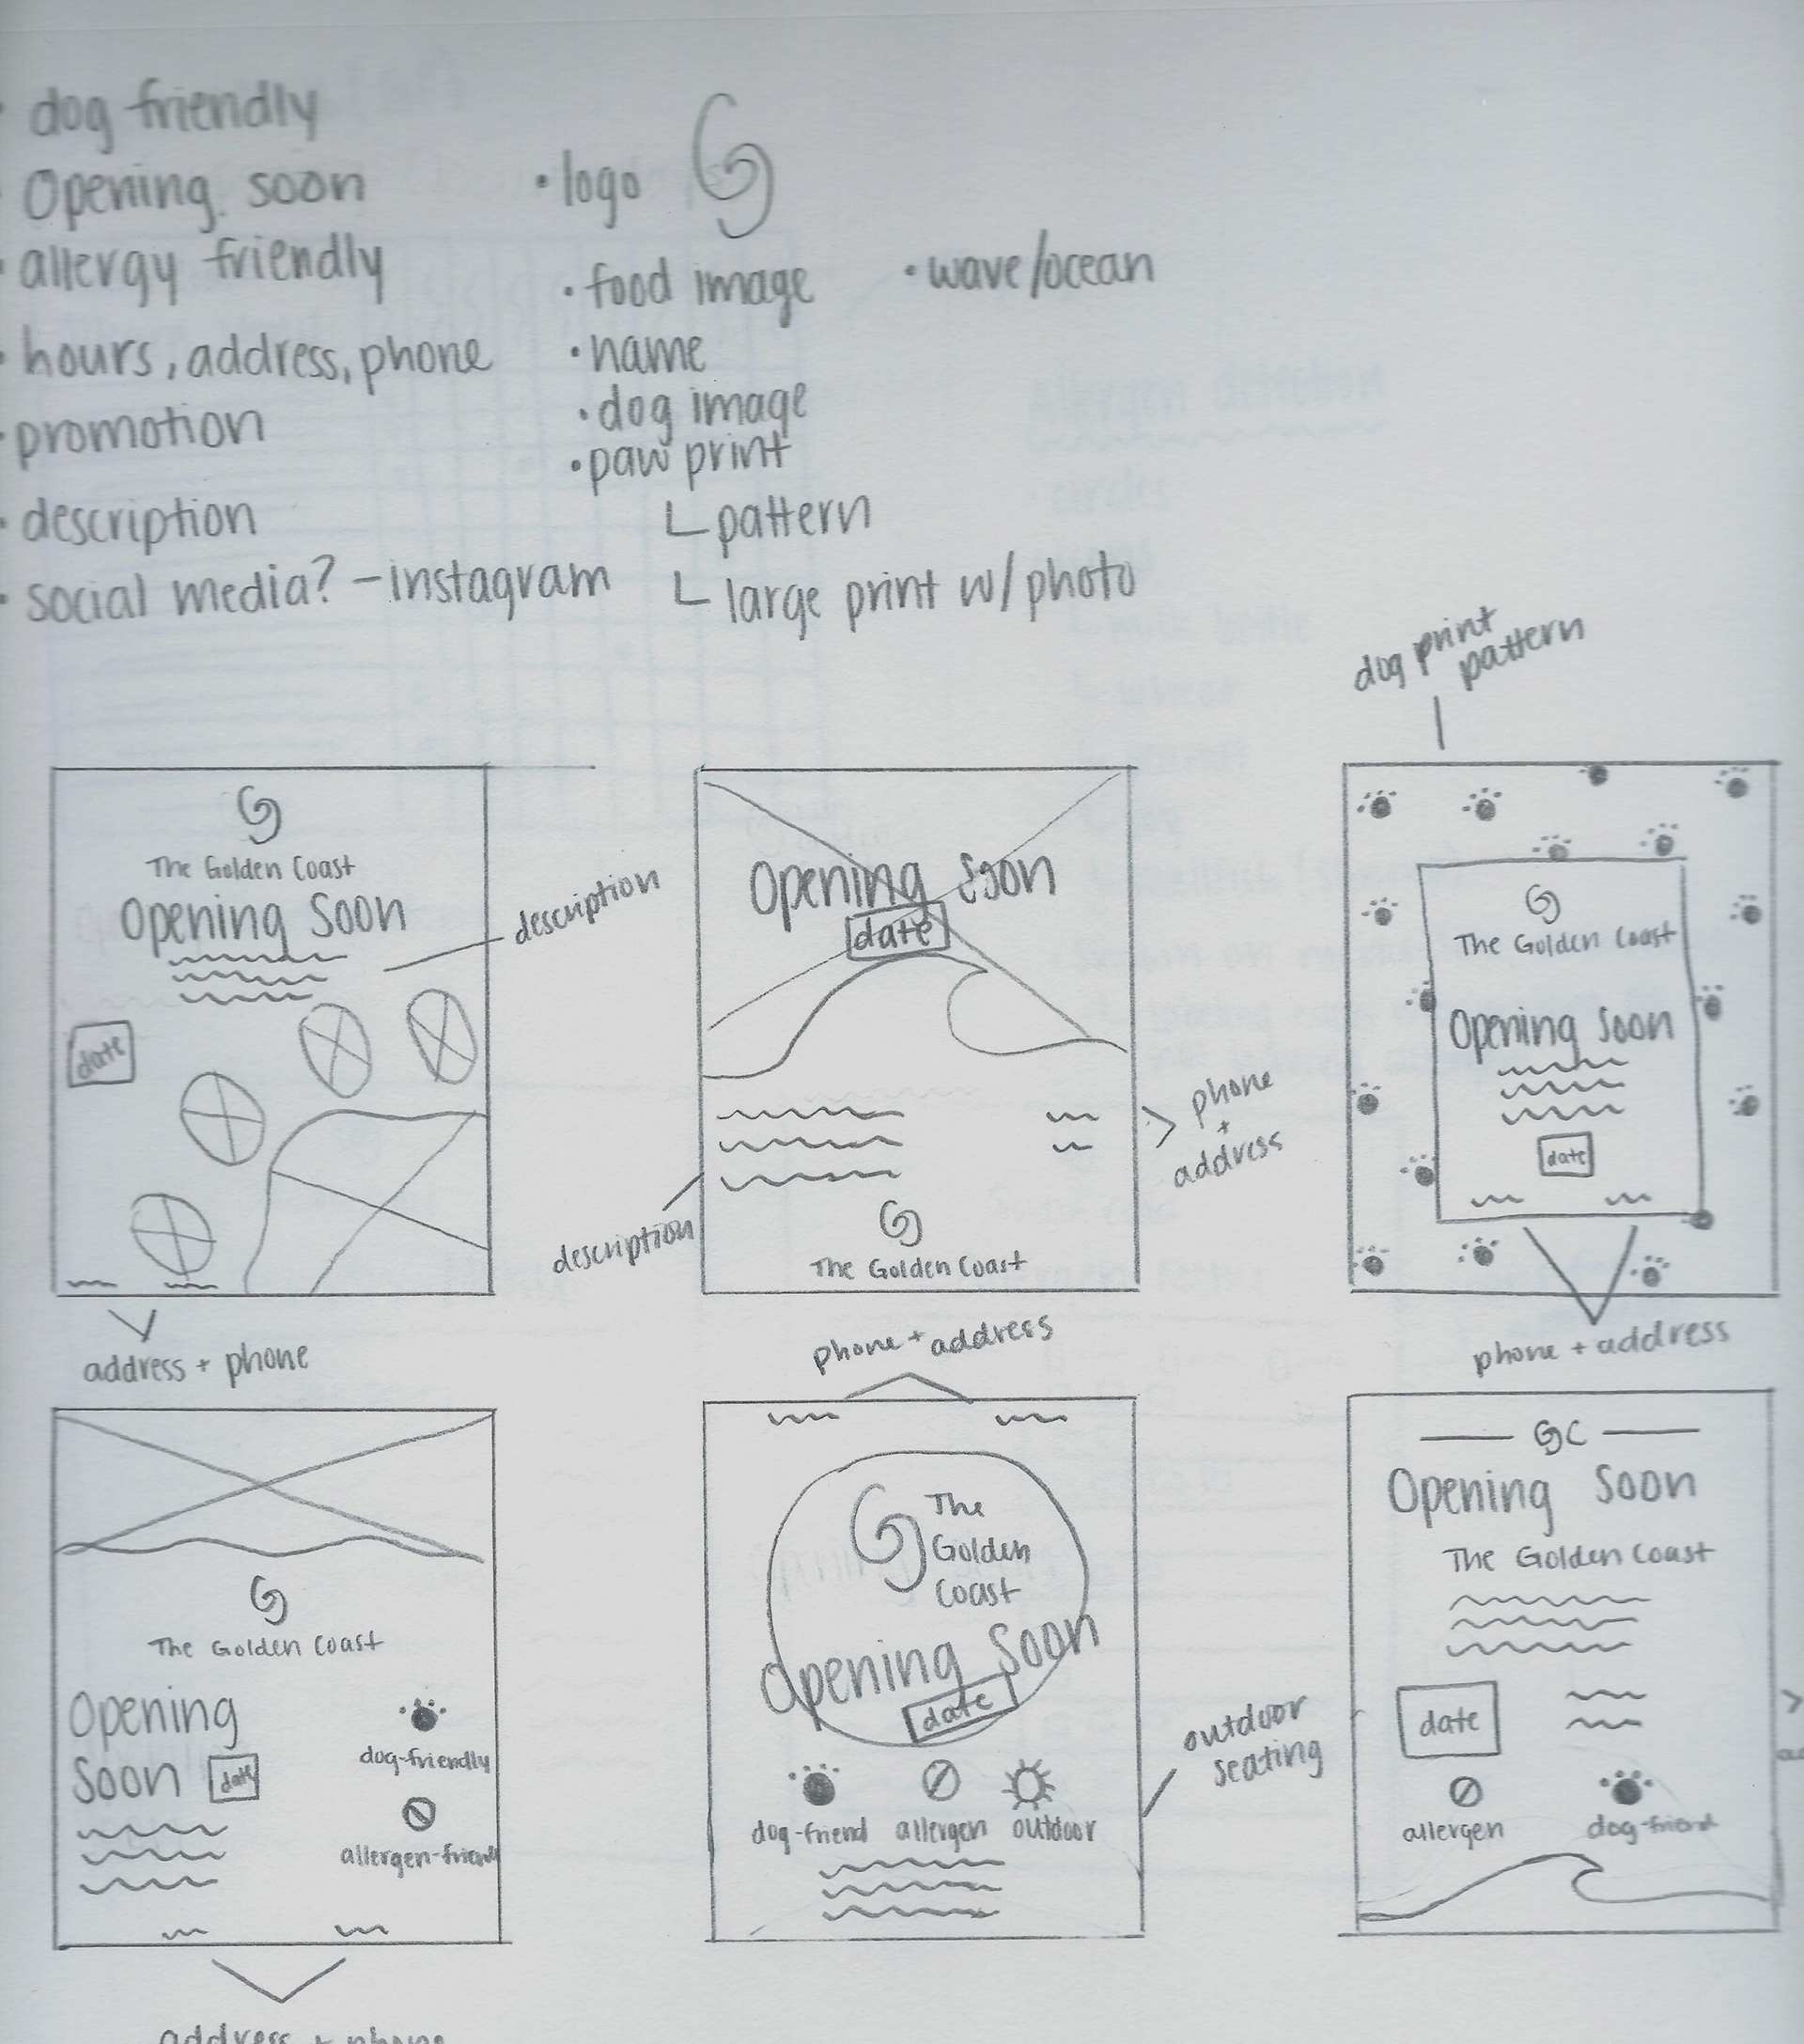 • dog friendly
• Opening soon
• allergy friendly
• hours, address, phone
• promotion
• description
• social media? – instagram
• logo
• food image
• name
• dog image
• paw print
pattern
large print w/ photo
• wave/ocean
The Golden Coast
Opening Soon
date
description
address + phone
Opening Soon
date
phone
+
address
description
The Golden Coast
dog print
pattern
The Golden Coast
Opening Soon
date
phone + address
The Golden Coast
Opening
Soon date
dog-friendly
allergen-friend
address + phone
phone + address
The
Golden
Coast
Opening Soon
date
dog-friend allergen outdoor
outdoor
seating
GC
Opening Soon
The Golden Coast
date
allergen dog-friend